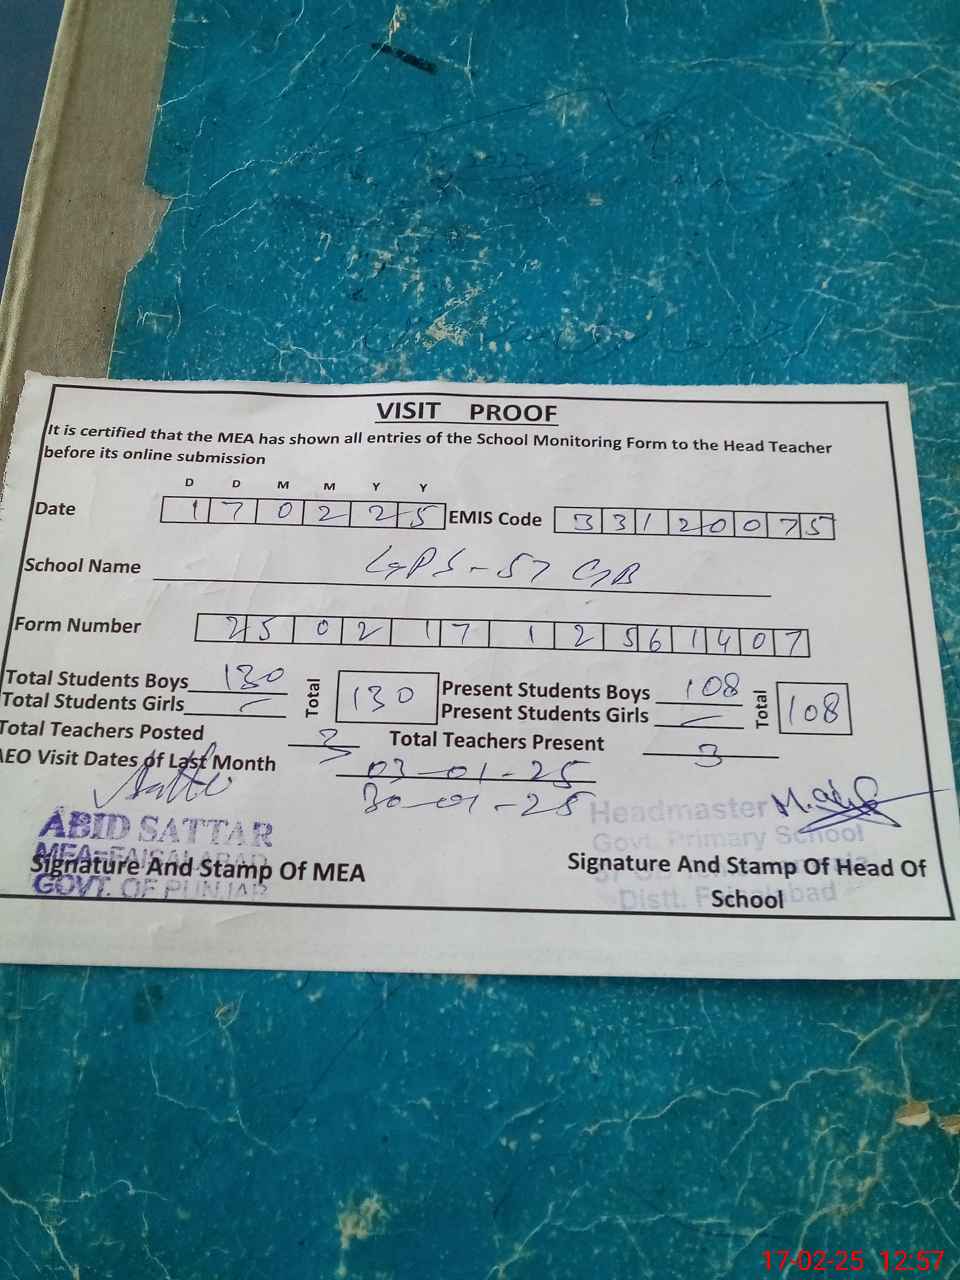 VISIT PROOF
It is certified that the MEA has shown all entries of the School Monitoring Form to the Head Teacher
before its online submission
D D M M Y Y
Date 1 7 0 2 2 5 EMIS Code 3 3 1 2 0 0 7 5
School Name GPS - 57 GB
Form Number 2 5 0 2 1 7 1 2 5 6 1 4 0 7
Total Students Boys 130 Total 130 Present Students Boys 108 Total 108
Total Students Girls - Present Students Girls -
Total Teachers Posted 3 Total Teachers Present 3
AEO Visit Dates of Last Month 03-01-25
30-01-25
ABID SATTAR
MEA-FAISALABAD
GOVT. OF PUNJAB
Signature And Stamp Of MEA
Headmaster
Govt. Primary School
Distt. Faisalabad
Signature And Stamp Of Head Of
School
17-02-25 12:57